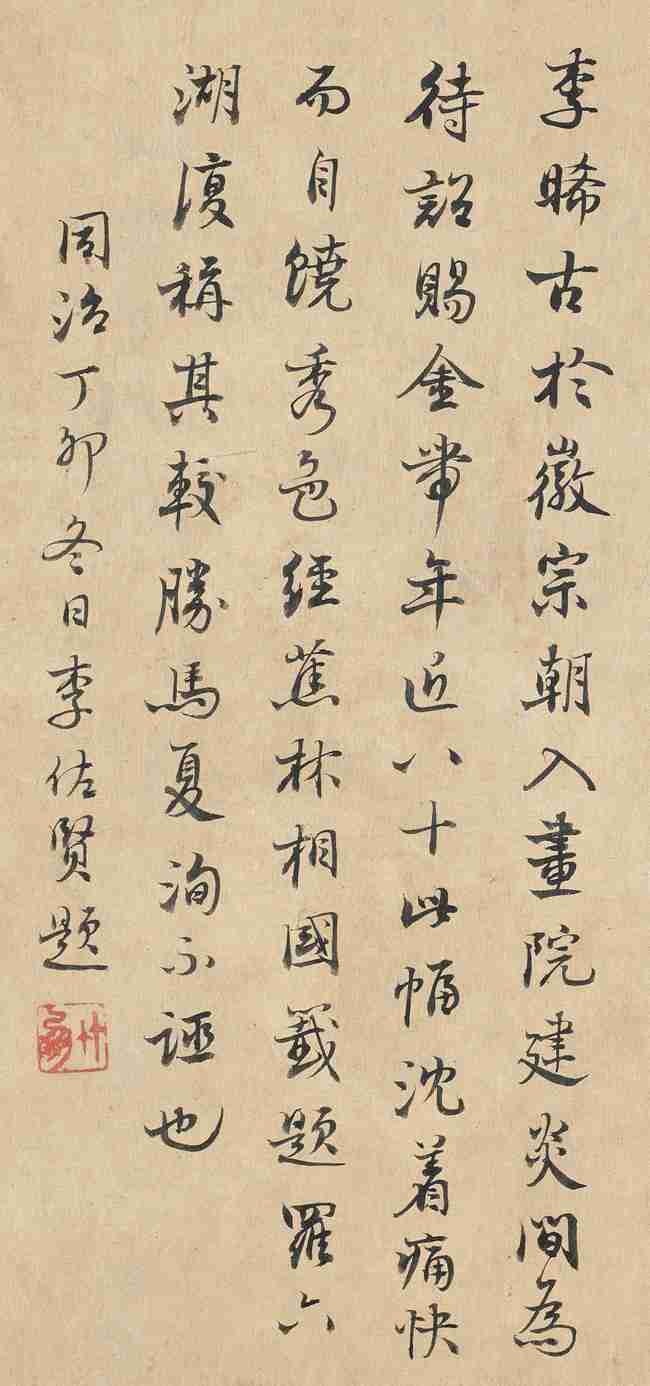 李晞古於徽宗朝入畫院建炎間為
待詔賜金帶年近八十此幅沈着痛快
而自饒秀色經蕉林相國籤題羅六
湖復稱其較勝馬夏洵不誣也
同治丁卯冬日李佐賢題